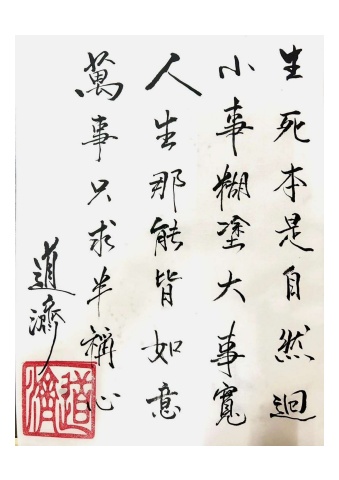 生死本是自然迴
小事糊塗大事寬
人生那能皆如意
萬事只求半稱心
道濟
道濟